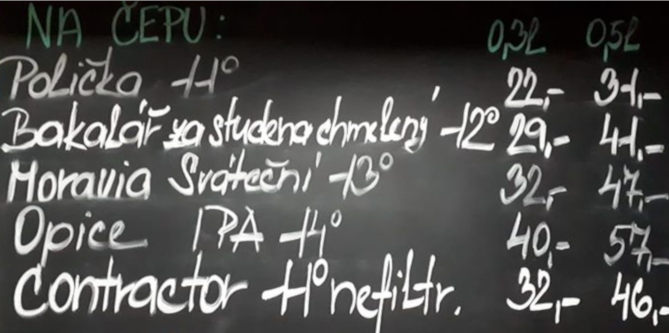 NA ČEPU: 0,3l 0,5l
Polička 11° 22,- 31,-
Bakalář za studena chmelený 12° 29,- 41,-
Moravia Sváteční 13° 32,- 47,-
Opice IPA 14° 40,- 57,-
Contractor 11° nefiltr. 32,- 46,-